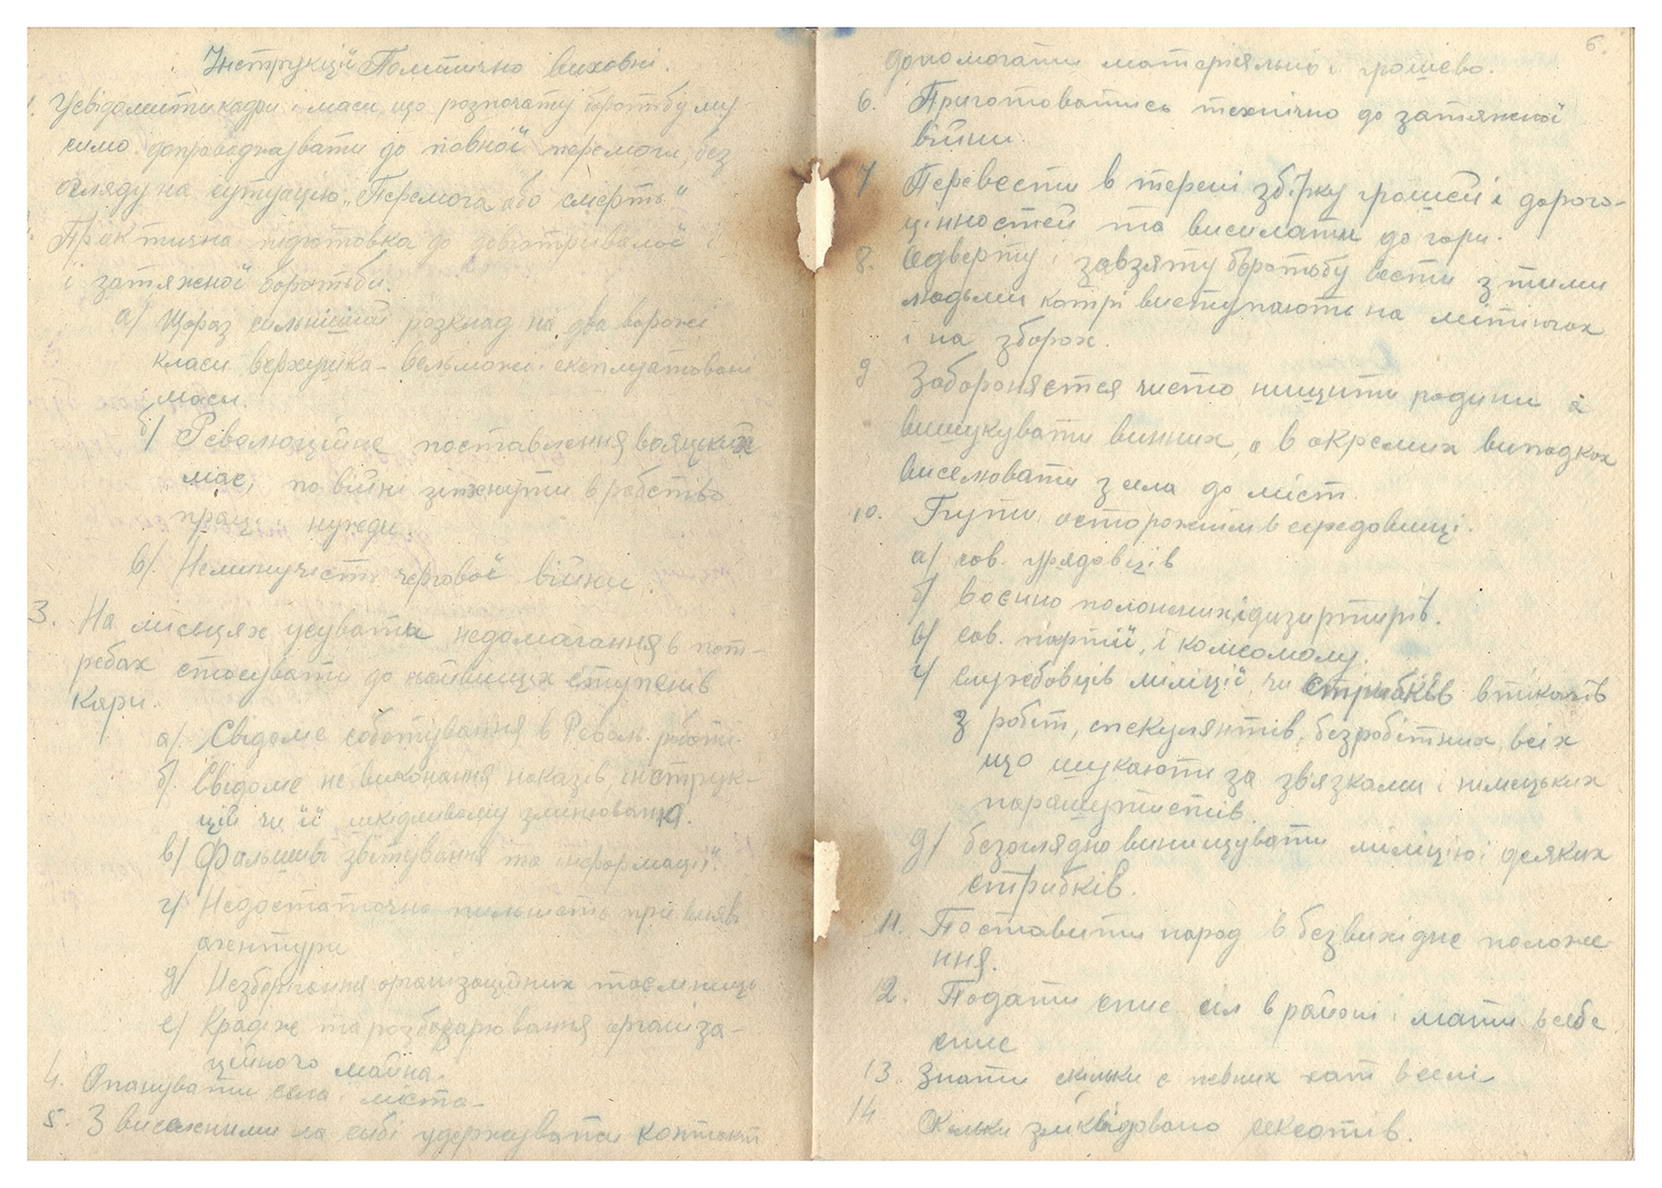 Інструкції Політично виховні.
1. Усвідомити кадри і маси, що розпочату боротьбу му-
симо допроваджувати до повної перемоги, без
огляду на ситуацію „Перемога або смерть"
Практична підготовка до довготривалої і
і затяжної боротьби.
а/ Щораз сильніший розклад на два ворожі
класи верхушка - вельможі і експлуатовані
маси.
б/ Революційне поставлення вояцьких
мас, по війні зіпхнути в рабство
праці і нужди.
в/. Неминучість чергової війни.
3. На місцях усувати недомагання в пот-
ребах стосувати до найвищих ступенів
кари.
а/. Свідоме саботування в Револ. роботі.
б/. Свідоме не виконання наказів, інструк-
цій чи її шкідливому змінюванні.
в/ Фальшиві звітування та інформації.
г/ Недостаточна пильність при вияві
агентури
д/ Незберігання організаційних таємниць
е/ Крадіж та розбазарювання організа-
ційного майна.
4. Опанувати села і міста -
5. З висланими на сибі удержувати контакт
6.
допомогати матеріяльно і грошево.
6. Приготоватись технічно до затяжної
війни.
7 Перевести в терені збірку грошей і дорого-
цінностей та висилати до гори.
8. Одверту і завзяту боротьбу вести з тими
людьми котрі виступають на мітінгах
і на зборах.
9 Забороняєтся чисто нищити родини а
вишукувати винних, а в окремих випадках
виселювати з села до міст.
10. Бути осторожнім в середовищі.
а/ сов. урядовців
б/ воєнно полонених і дизиртирів.
в/ сов. партії, і комсомолу.
г/ службовців міліції, чи стрибків втікачів
з робіт, спекулянтів, безробітних, всіх
що шукають за звязками і німецьких
парашутистів.
д/ безоглядно винищувати міліцію і деяких
стрибків.
11. Поставити народ в безвихідне положе-
ння.
12. Подати спис сіл в районі і мати в себе
спис
13. Знати скільки є певних хат в селі
14. Скільки зліквідовано сексотів.